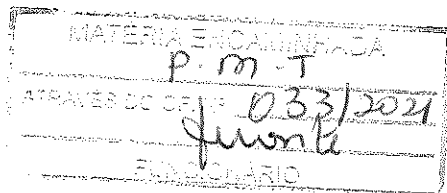 MATERIA ENCAMINHADA
P.M.T
ATRAVÉS DO OFÍCIO 033/2021
FUNCIONÁRIO